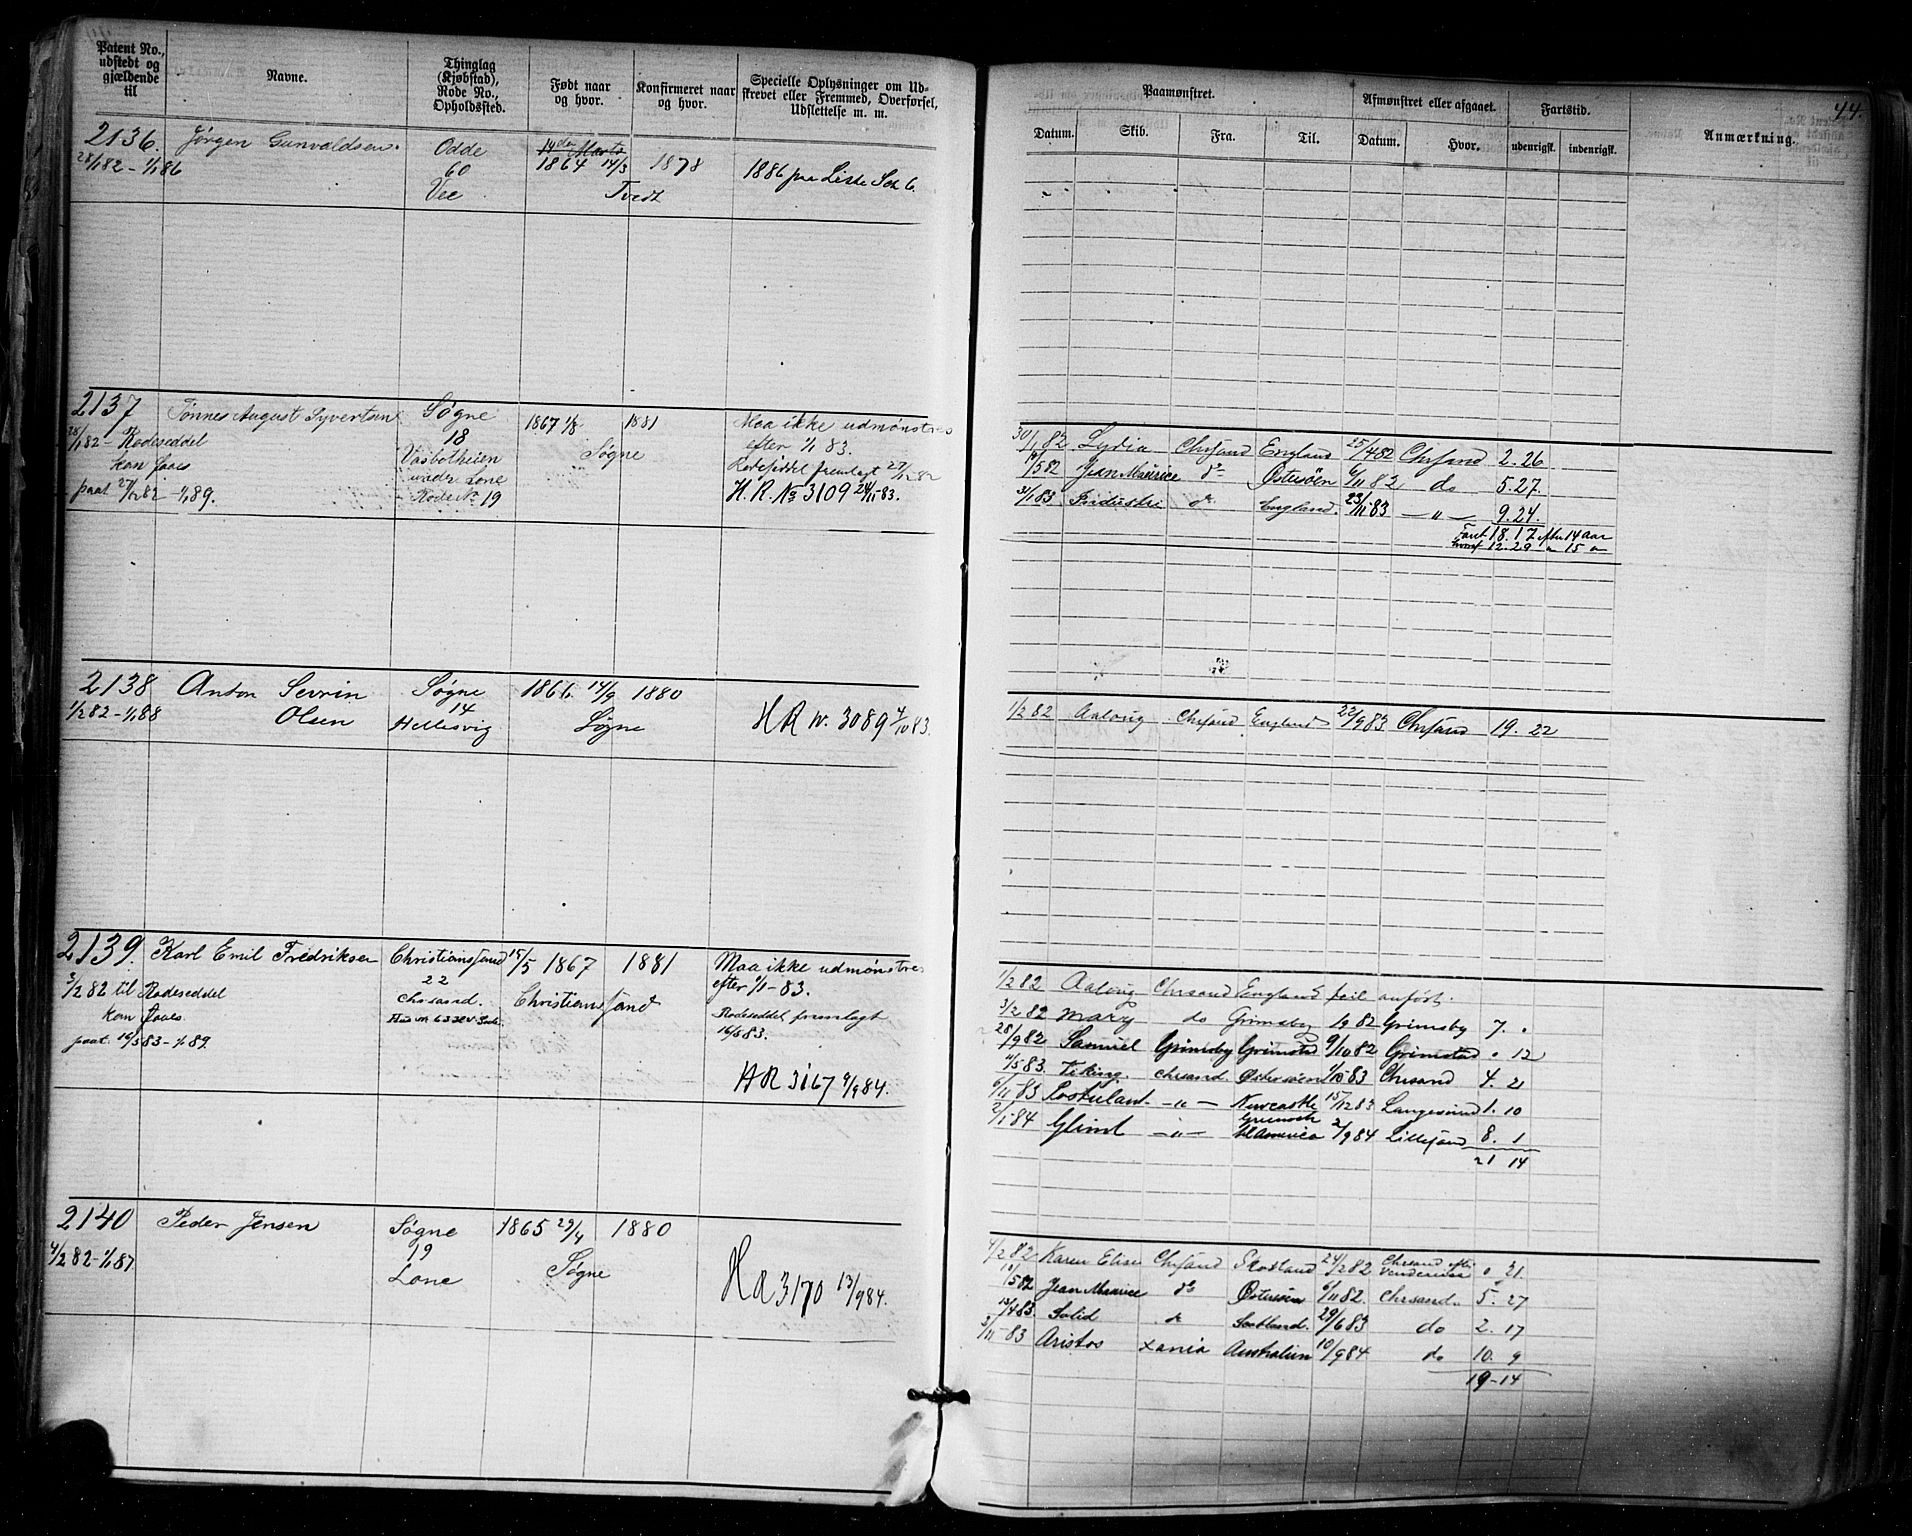 Patent No., udstedt og gjældende til
Navne.
Thinglag (Kjøbstad), Rode No., Opholdssted.
Født naar og hvor.
Konfirmeret naar og hvor.
Specielle Oplysninger om Udskrevet eller Fremmed, Overførsel, Udslettelse m. m.
2136. Jørgen Gunvaldsen. Odde 14de Marts
28/1 82 – 1/1 86 60 1864 14/3 1878 1886 paa Liste Sch 6.
Vee Tvedt
2137 Tønnes August Syvertsen Søgne 1867 1/8 1881 Maa ikke udmønstres
28/1 82 – Rodeseddel 18 Søgne efter 1/1 83.
kan faaes Vasbotheien Rodeseddel fremlagt 27/12 82
paat. 27/12 82 – 1/1 89. under Lone H.R. No 3109 24/11 83.
Rode No 19
2138 Anton Sevrin Søgne 1866 14/9 1880
1/2 82 – 1/1 88 Olsen 14 Søgne HR N. 3089 4/10 83.
Hellesvig
2139. Karl Emil Fredriksen Christianssand 15/5 1867 1881 Maa ikke udmønstres
3/2 82 til Rodeseddel 22 Christianssand efter 1/1 – 83.
kan faaes Chrsand. Rodeseddel fremlagt
paat. 16/5 83 – 1/1 89. 16/5 83.
HR 3167 9/9 84.
2140 Peder Jensen Søgne 1865 29/4 1880
4/2 82 – 1/1 87. 19 Søgne
Lone HR 3170 13/9 84.
44.
Paamønstret. Afmønstret eller afgaaet. Fartstid. Anmærkning.
Datum. Skib. Fra. Til. Datum. Hvor. udenrigsk. indenrigsk.
30/1 82 Lydia Chrsand England 25/4 82 Chrsand 2.26
19/5 82 Jean Maurice do Østersöen 6/11 82 do 5.27.
31/1 83 Industri do England. 23/11 83 – " – 9.24.
Fart 18.17 efter 14 aar
hvoraf 12.29 " 15 "
1/2 82 Aalong Chrsand England 22/9 83 Chrsand 19. 22
1/2 82 Aalong Chrsand England feil anført.
3/2 82 Mary do Grimsby 19 82 Grimsby 7 .
28/9 82 Samuel Grimsby Grimstad 9/10 82 Grimstad . 12
11/5 83. Viking. Chrsand. Østersöen 1/10 83 Chrsand 4. 21
6/11 – 83 Postulant – " – Newcastle 15/12 83 Langesund 1. 10
2/1 84 Glimt – " – Greenock Nl America 2/9 84 Lillesand 8. 1
21 14
4/2 82 Karen Elise Chrsand Skotland 24/2 82 Chrsand . 21
19/5 82 Jean Maurice do Østersöen 6/11 82. Chrsand. 5. 27
13/4 83. Solid do Skotland. 29/6 83 do 2. 17
3/11 – 83 Aristos Xania Australien 10/9 84 do 10. 9
19 – 14